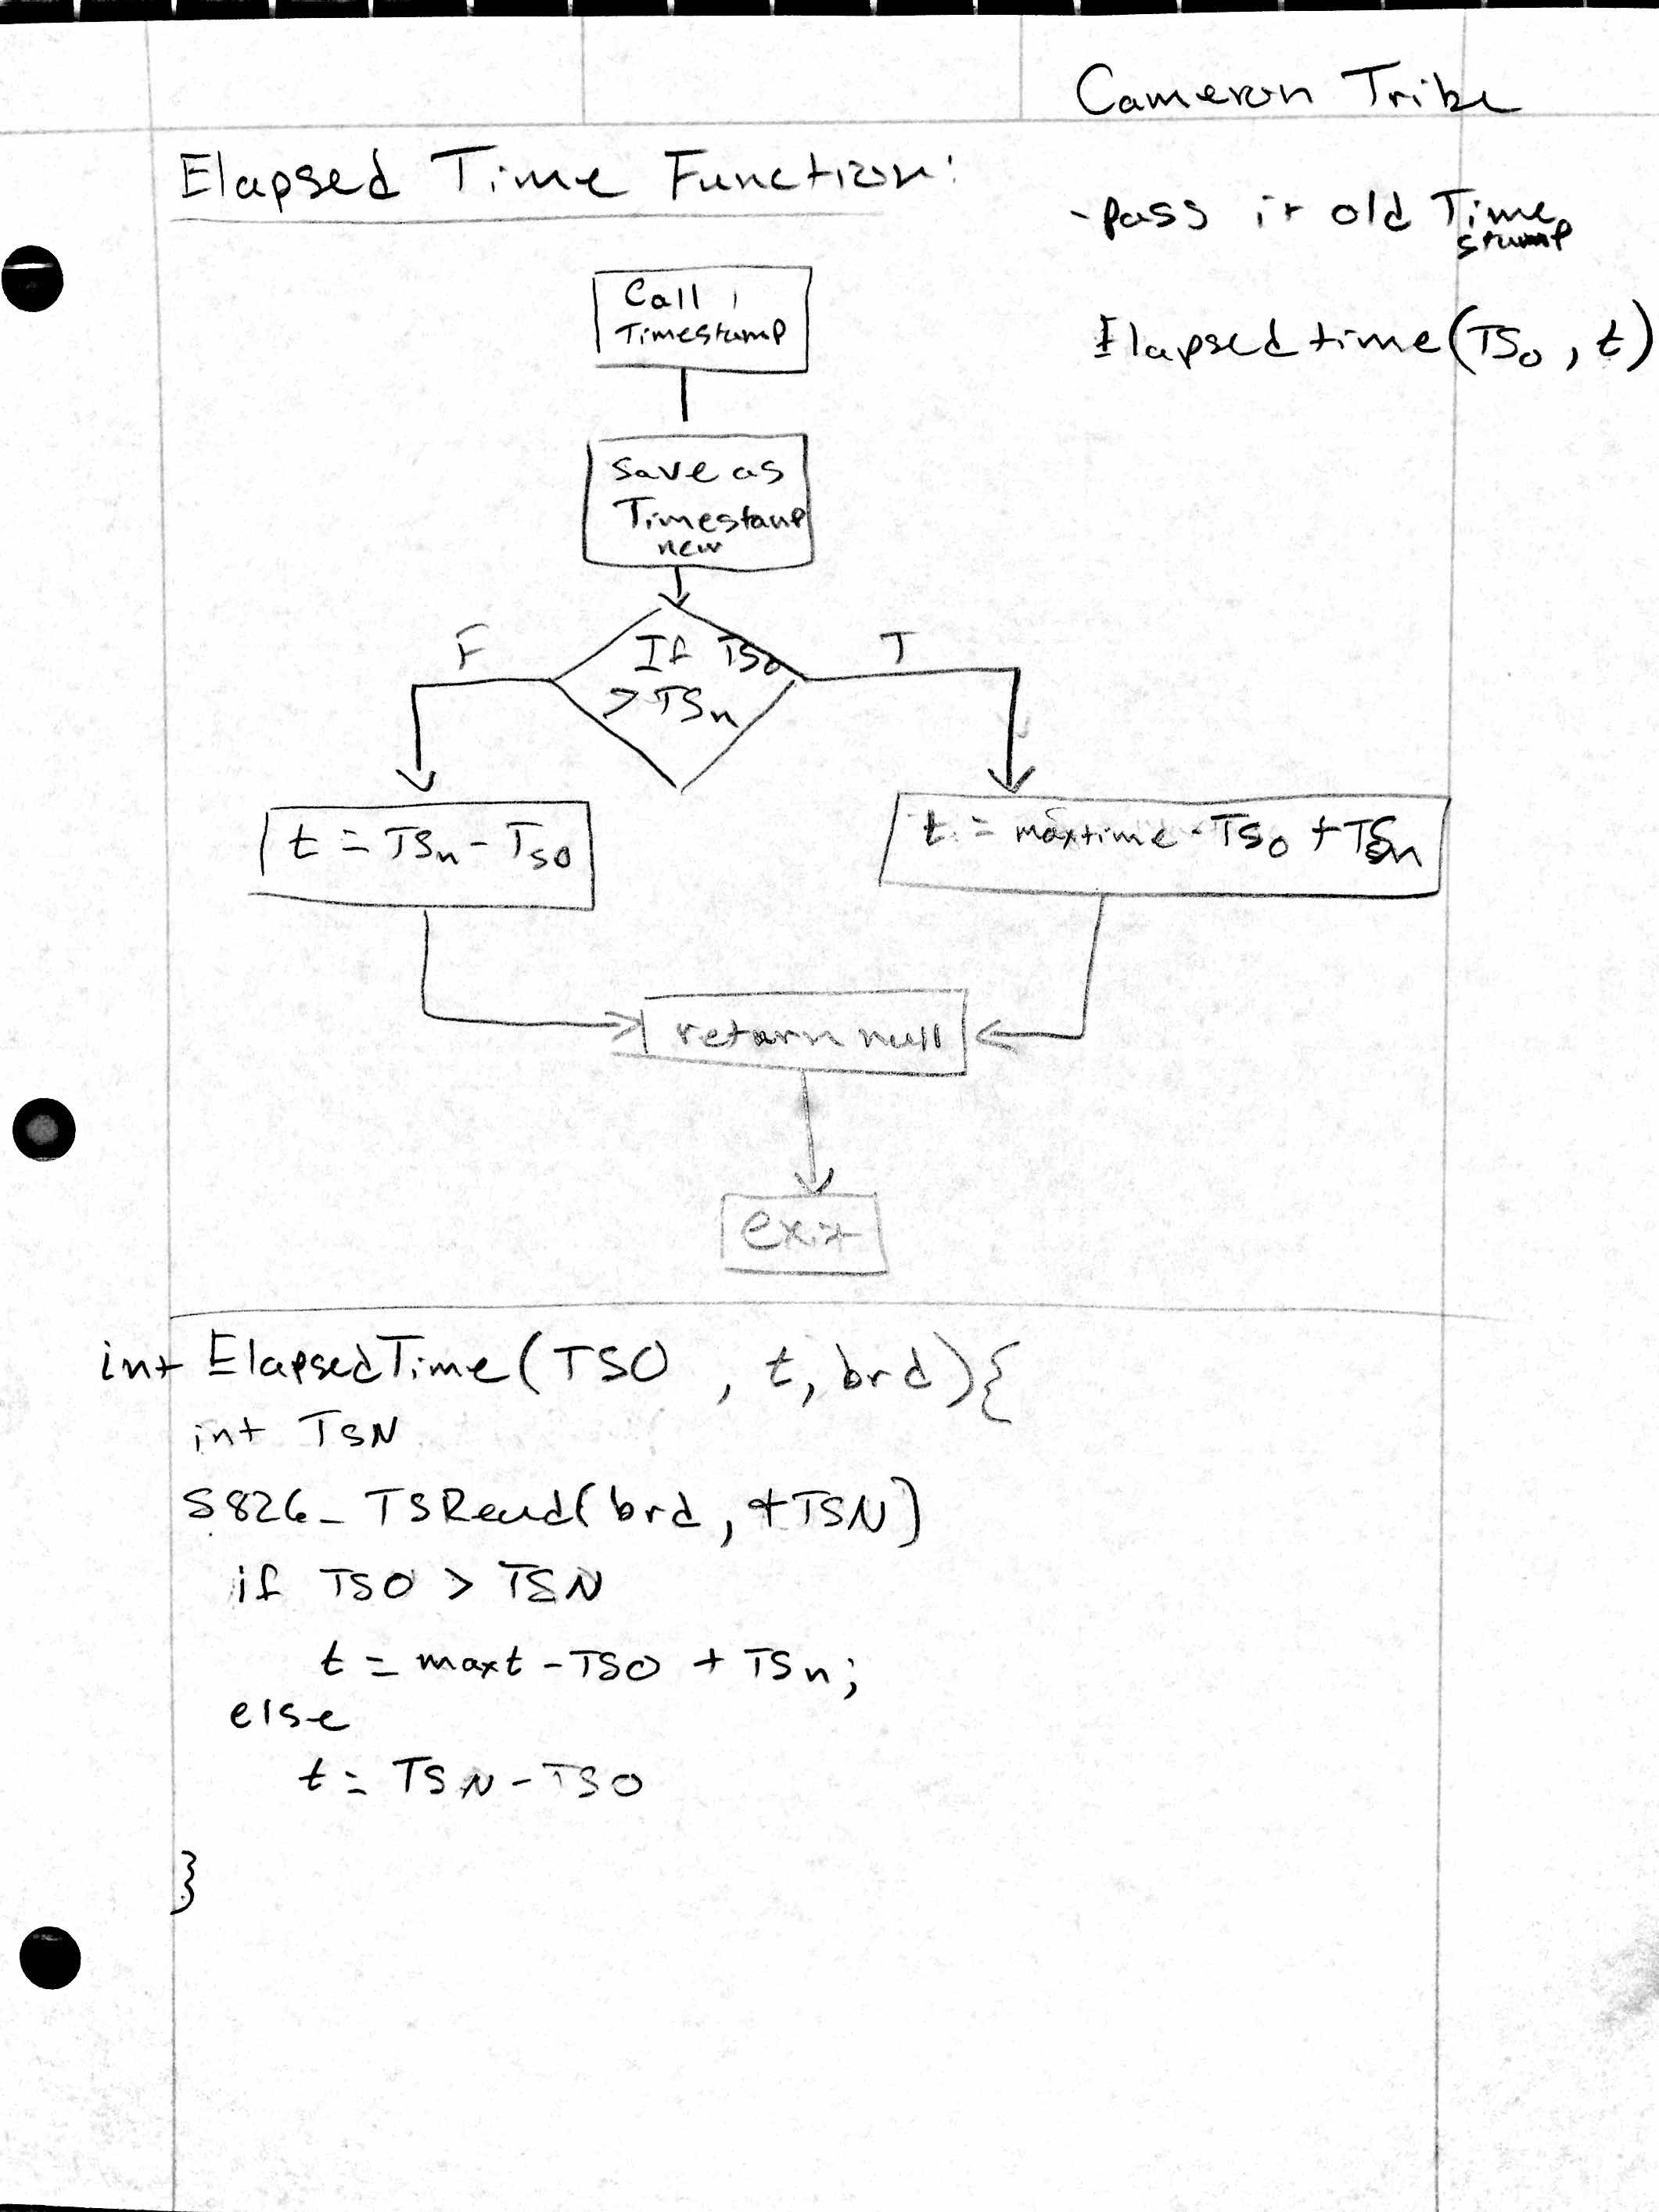 Cameron Tribe
Elapsed Time Function:
- pass it old Time
stamp
Elapsed time (TSo, t)
Call
Timestamp
Save as
Timestamp
new
If TSo
> TSn
F
T
t = TSn - TSO
t = maxtime - TSo + TSn
return null
exit
int ElapsedTime (TSO , t, brd) {
int TSN
S826_TSRead( brd, &TSN)
if TSO > TSN
t = maxt - TSO + TSn;
else
t = TSN - TSO
}